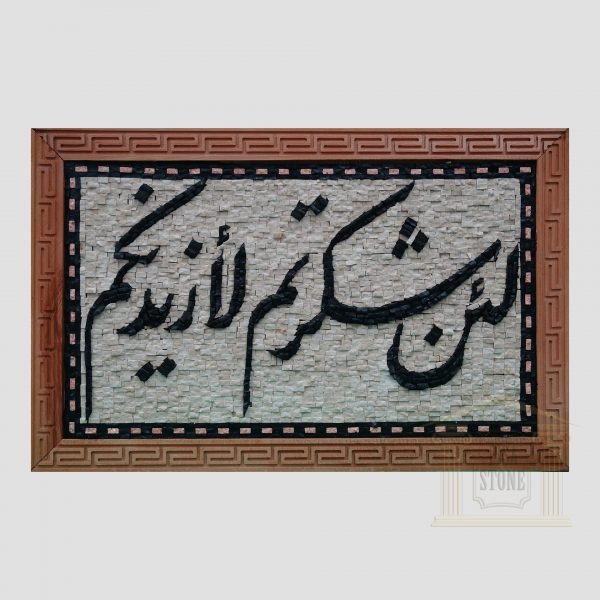 لئن شكرتم لأزيدنكم
STONE